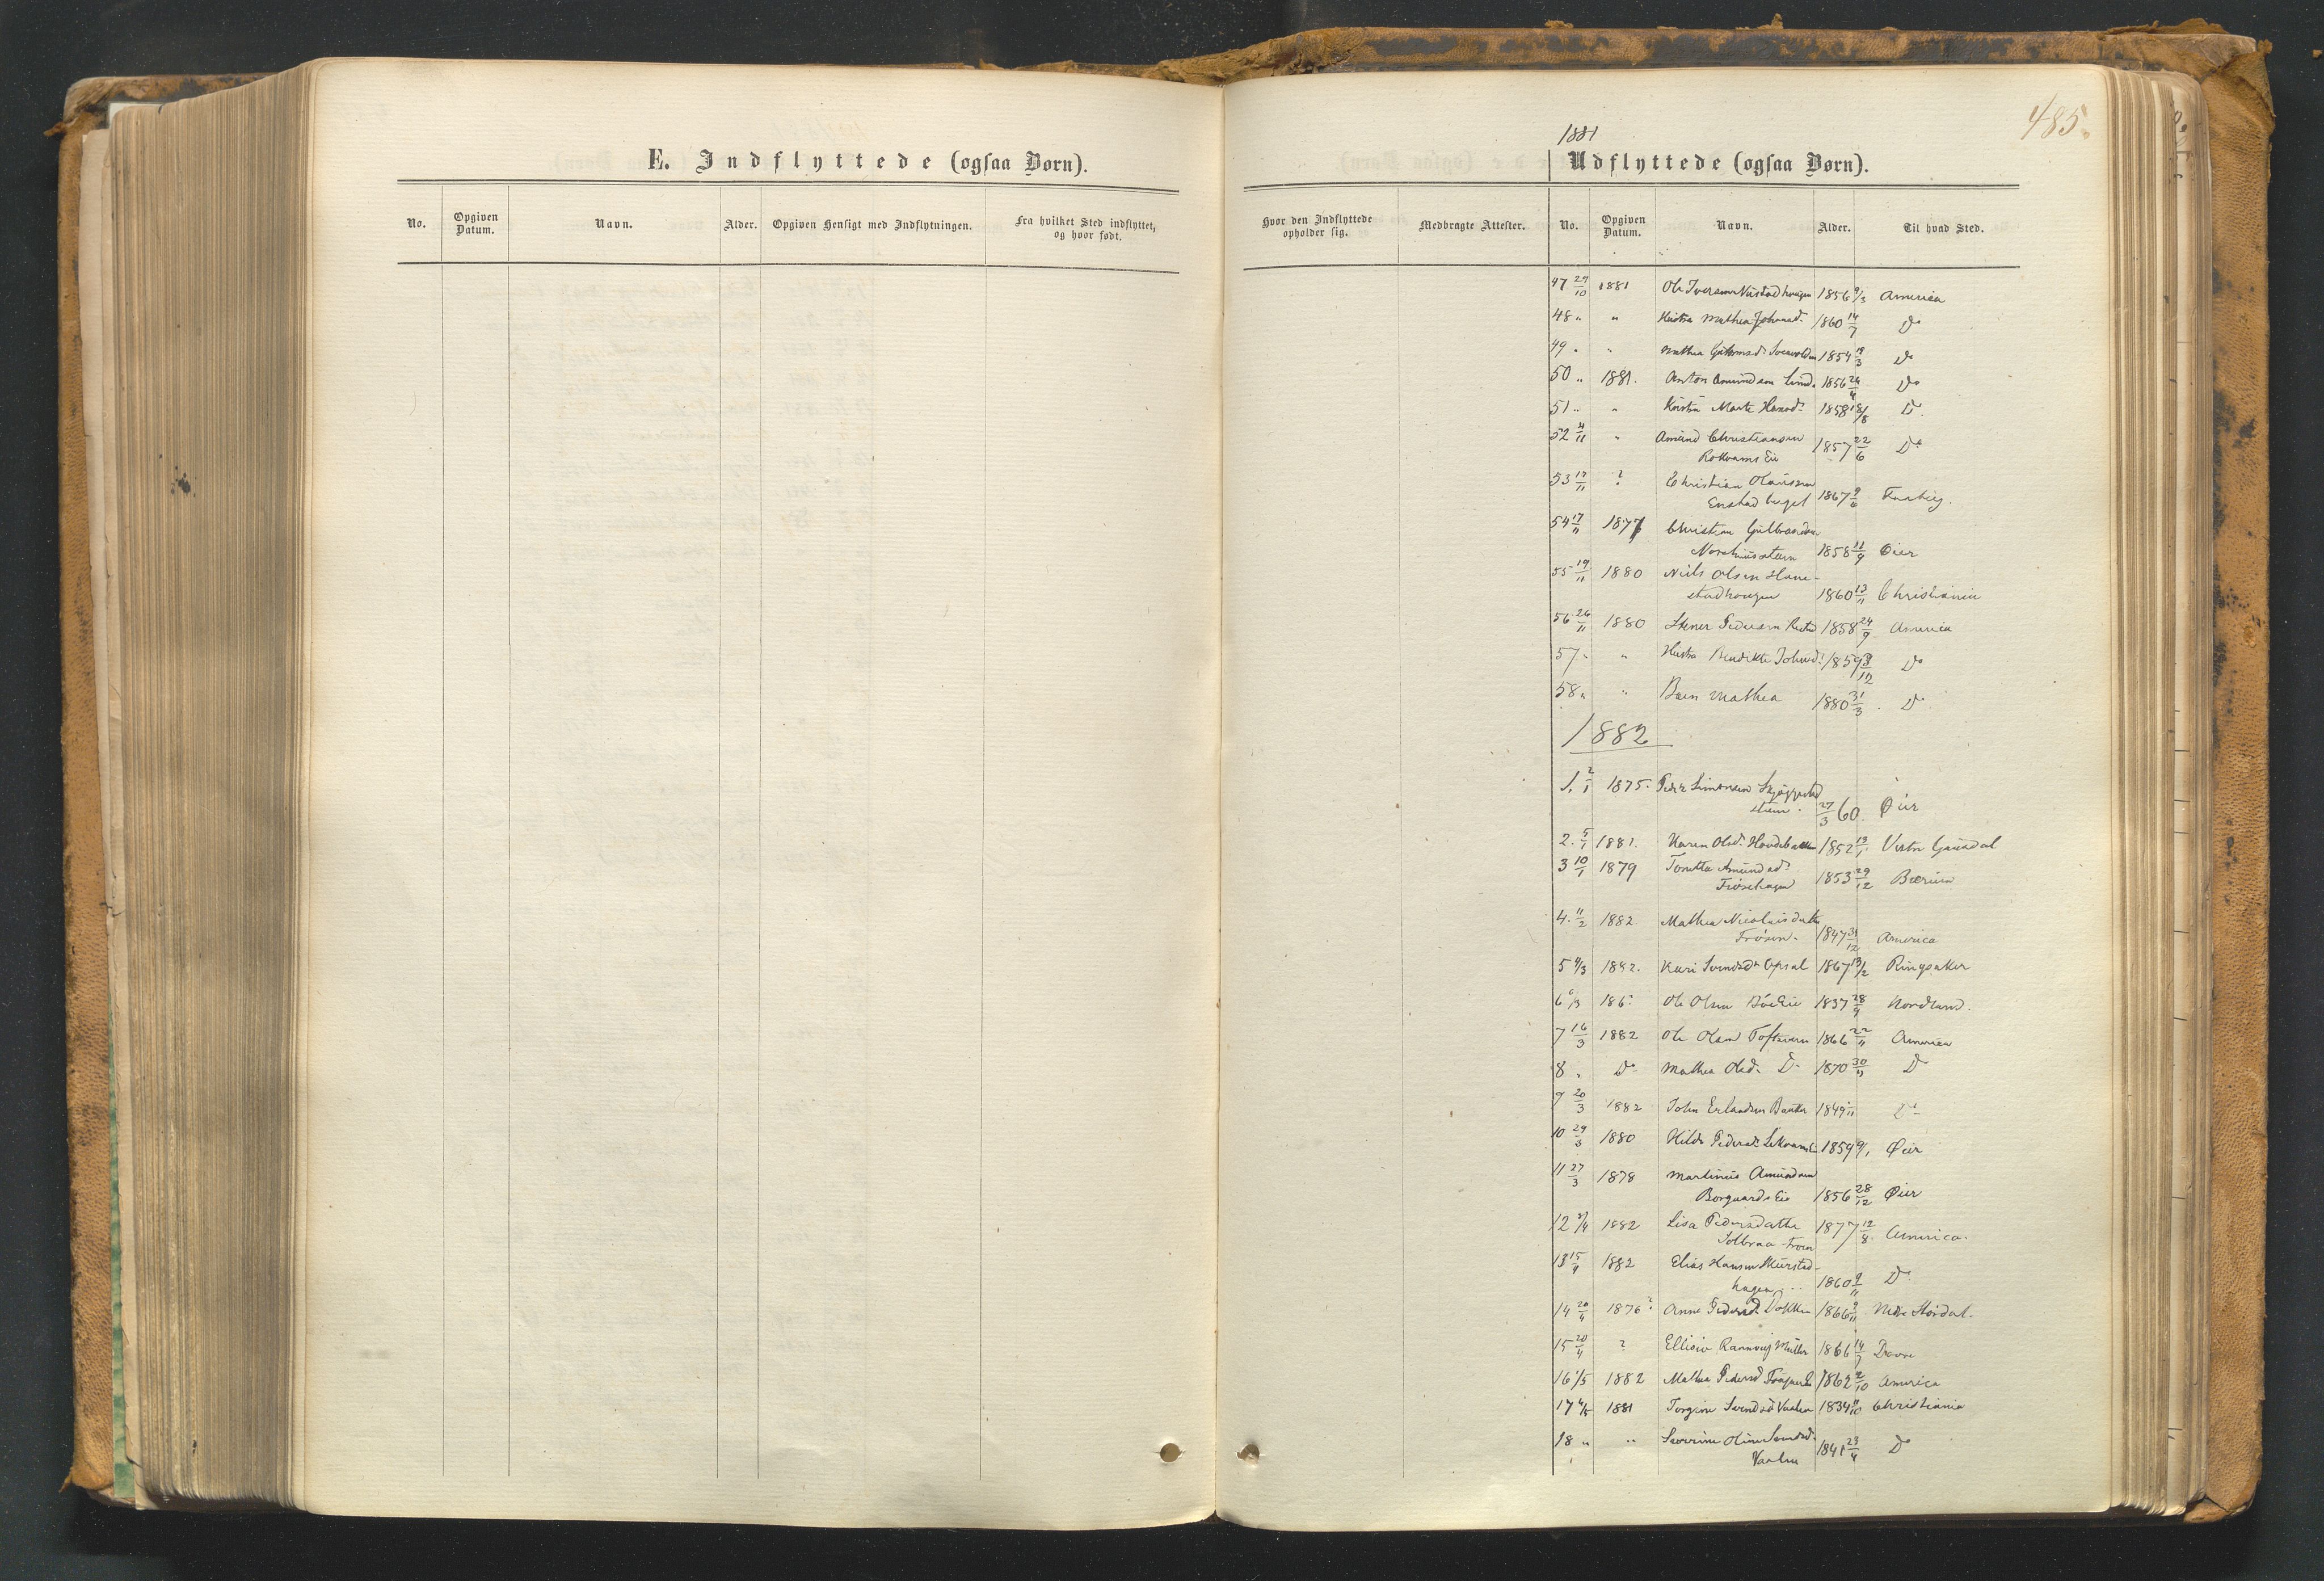 485.
1881
E. Indflyttede (ogsaa Børn).
Udflyttede (ogsaa Børn).
No. Opgiven Datum. Navn. Alder. Opgiven Hensigt med Indflytningen. Fra hvilket Sted indflyttet, og hvor født.
Hvor den Indflyttede opholder sig. Medbragte Attester. No. Opgiven Datum. Navn. Alder. Til hvad Sted.
47 27/10 1881 Ole Iversen 1856 9/3 America
48 " " Hustru Mathea Johansd. 1860 14/7 Do
49 " " Mathea 1854 19/3 Do
50 " 1881. Anton Amundsen Lund 1856 24/4 Do
51 " " Hustru Marte Hansd. 1858 18/8 D.
52 4/11 " Amund Christiansen
Rolkvams Eie 1857 22/6 Do
53 17/11 ? Christian Olaussen
Enstad 1867 9/6 Faaberg.
54 17/11 1877 Christian Gulbrandsen
1858 11/9 Øier
55 19/11 1880 Niils Olsen Hane-
stadhougen 1860 13/11 Christiania
56 26/11 1880 Stener Pedersen 1858 24/9 America
57 " " Hustru Bendikte Johnsd. 1859 3/12 Do
58 " " Barn Mathea 1880 31/3 Do
1882
1. 2/1 1875. Peder Simonsen Skjæggestad
stuen. 27/3 60. Øier
2. 5/1 1881. Karen Olsd. 1852 13/1 Vestre Gausdal
3 10/1 1879 Amundsd.
Frøisehagen 1853 29/12 Bærum
4. 11/2 1882 Mathea Nicolaisdatter
Frøisen. 1847 31/12 America
5 4/3 1882. Kari Svendsdr Opsal 1867 13/2 Ringsaker
6 6/3 186? Ole Olsen Eie 1837 28/9 Nordland.
7 16/3 1882 Ole Olsen 1866 22/11 America
8 " Do Mathea Olsd. D. 1870 30/11 D
9 20/3 1882 John Erlandsen 1849 Do
10 29/3 1880 Hilda Pedersd. 1859 9/1 Øier
11 27/3 1878 Martinus Amundsen
Borgaards Eie 1856 28/12 Øier
12 1882 Lisa Pedersdatter
Solbraa 1877 12/8 America.
13 15/4 1882 Elias Hansen
hagen 1860 9/11 D
14 20/4 1876? Anne Pedersd. Dokken 1866 9/11
15 20/4 ? Ellisiv Rannveig Müller 1866 14/7 Dovre
16 1/5 1882 Mathea Pedersd 1862 2/10 America
17 1881 Torgine Svendsd Vaalen 1834 Christiania
18 " " Severine Oline Svendsd.
Vaalen 1841 23/4 Do